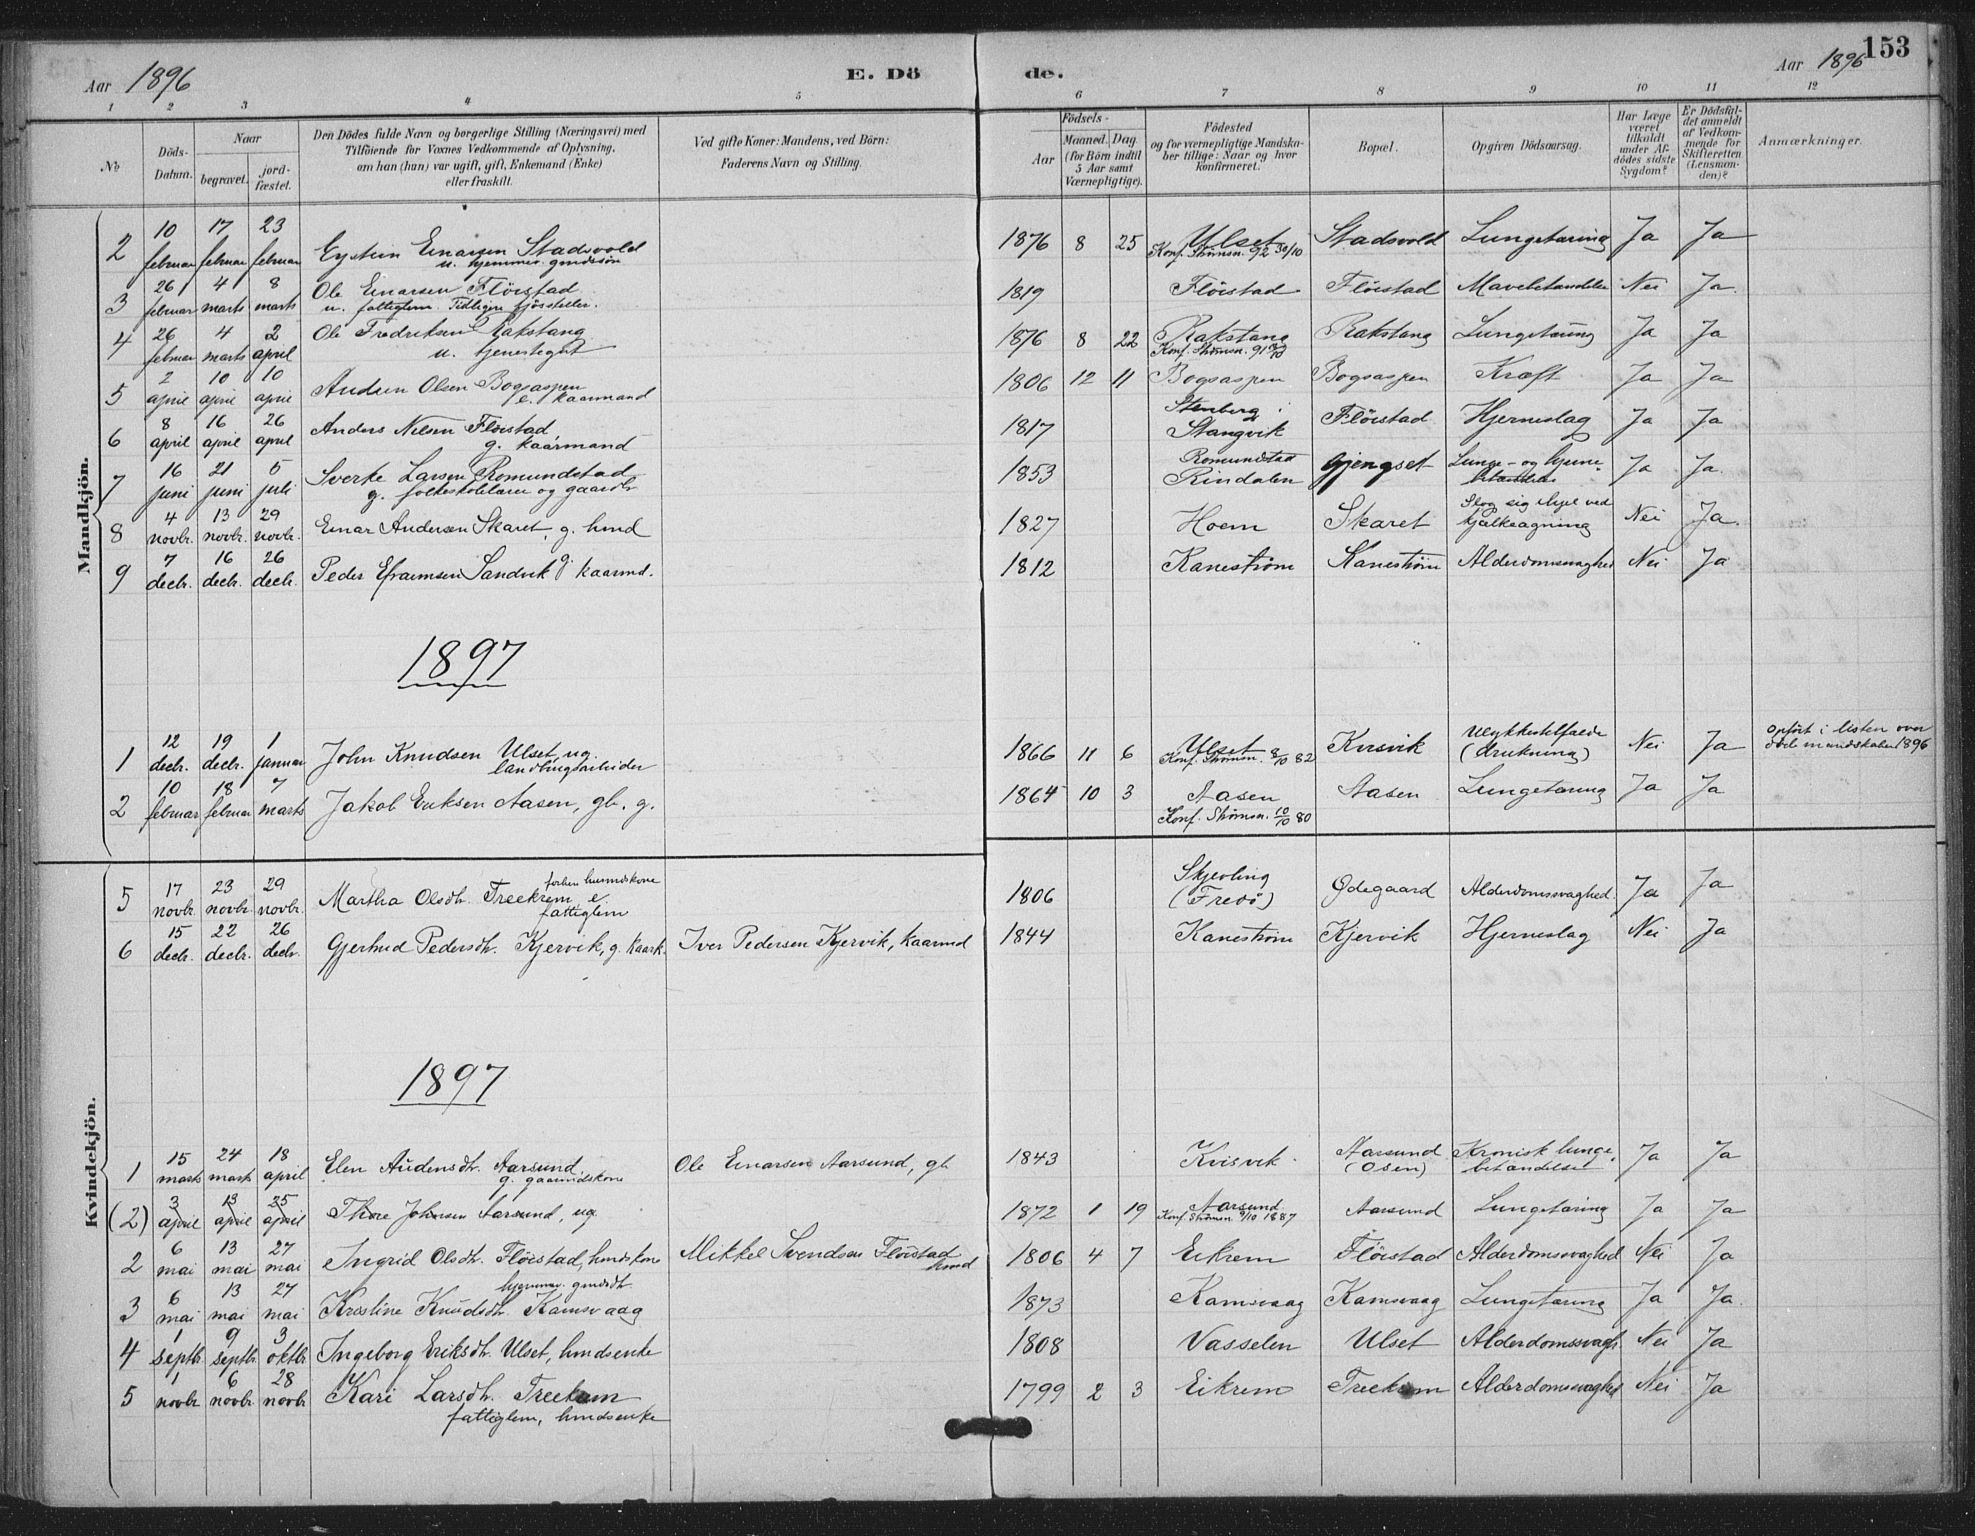 Aar 1896
E. Dö
de.
Aar 1896
153
1 2 3 4 5 6 7 8 9 10 11 12
No
Döds-Datum.
Naar
begravet.
jord-fæstet.
Den Dödes fulde Navn og borgerlige Stilling (Næringsvei) med
Tilföiende for Voxnes Vedkommende af Oplysning,
om han (hun) var ugift, gift, Enkemand (Enke)
eller fraskilt.
Ved gifte Koner: Mandens, ved Börn:
Faderens Navn og Stilling.
Födsels-
Aar
Maaned. Dag
(for Börn indtil
5 Aar samt
Værnepligtige).
Födested
og for værnepligtige Mandska-
ber tillige: Naar og hvor
konfirmeret.
Bopæl.
Opgiven Dödsaarsag.
Har Læge
været
tilkaldt
under Af-
dödes sidste
Sygdom?
Er Dödsfal-
det anmeldt
af Vedkom-
mende for
Skifteretten
(Lensman-
den)?
Anmærkninger.
Mandkjön.
2 10 februar 17 februar 23 februar Eystein Einarsen Stadsvold 1876 8 25 Ulset Stadsvold Lungetæring Ja Ja
u. hjemmev. gmdssøn Konf. Strømsn. 92 30/10
3 26 februar 4 marts 8 marts Ole Einarsen Fløistad 1819 Fløistad Fløistad Nei Ja.
u. fattiglem. Tidligere
4 26 februar 4 marts 2 april Ole Fredriksen Rakstang 1876 8 22 Rakstang Rakstang Lungetæring Ja Ja
u. tjenestegut Konf. Strømsn. 91
5 2 april 10 april 10 april Olsen Bogsaspen 1806 12 11 Bogsaspen Bogsaspen Kræft Ja Ja
e. kaarmand
6 8 april 16 april 26 april Anders Nilsen Fløistad 1817 Stenberg i Stangvik Fløistad Hjerneslag Ja Ja
g. kaarmand
7 16 juni 21 juni 5 juli Sverke Larsen Romundstad 1853 Romundstad Rindalen Gjengset Lunge- og hjerne- Ja Ja.
g. og gaardbr
8 4 novbr. 13 novbr. 29 novbr. Einar Andersen Skaret, g. hmd 1827 Hoem Skaret Slog sig ihjel ved kjælkeagning Nei Ja.
9 7 decbr. 16 decbr. 26 decbr. Peder Efraimsen Sandvik g. kaarmd. 1812 Kanestrøm Kanestrøm Alderdomssvaghed Nei Ja
1897
1 12 decbr. 19 decbr. 1 januar John Knudsen Ulset, ug. 1866 11 6 Ulset Kvisvik Ulykkestilfælde (drukning) Nei Ja Opført i listen over døde mandskaber 1896
landbrugsarbeider Konf. Strømsn. 8/10 82
2 10 februar 18 februar 7 marts Jakob Eriksen Aasen, gb. g. 1864 10 3 Aasen Aasen Lungetæring Ja Ja
Konf. Strømsn. 10/10 80
Kvindekjön.
5 17 novbr. 23 novbr. 29 novbr. Martha Olsdtr. Treekrem, e. 1806 Skjevling (Fredö) Ødegaard Alderdomssvaghed. Ja Ja
forhen husmdskone fattiglem
6 15 decbr. 22 decbr. 26 decbr. Gjertrud Pedersdtr. Kjervik, g. kaark. Iver Pedersen Kjervik, kaarmd 1844 Kanestrøm Kjervik Hjerneslag Nei Ja
1897
1 15 marts 24 marts 18 april Elen Audensdtr. Aarsund Ole Einarsen Aarsund, gb 1843 Kvisvik Aarsund (Osen) Kronisk lunge- betændelse Ja Ja
g. gaarmdskone
(2) 3 april 13 april 25 april Thore Johnsen Aarsund, ug. 1872 1 19 Aarsund Aarsund Lungetæring Ja Ja
Konf. Strømsn. 9/10 1887
2 6 mai 13 mai 27 mai Ingrid Olsdtr. Fløistad, hmdskone Mikkel Svendsen Fløistad hmd 1806 4 7 Eikrem Fløistad Alderdomssvaghed Nei Ja
3 6 mai 13 mai 27 mai Kristine Knudsdtr. Kamsvaag 1873 Kamsvaag Kamsvaag Lungetæring Ja Ja.
hjemmev. gmdsdtr.
4 1 septbr 9 septbr. 3 oktbr Ingeborg Eriksdtr. Ulset, hmdsenke 1808 Vasselen Ulset Alderdomssvagh. Nei Ja
5 1 novbr 6 novbr 28 novbr Kari Larsdtr. Treekrem 1799 2 3 Eikrem Treekrem Alderdomssvaghed Nei Ja
fattiglem, hmdsenke